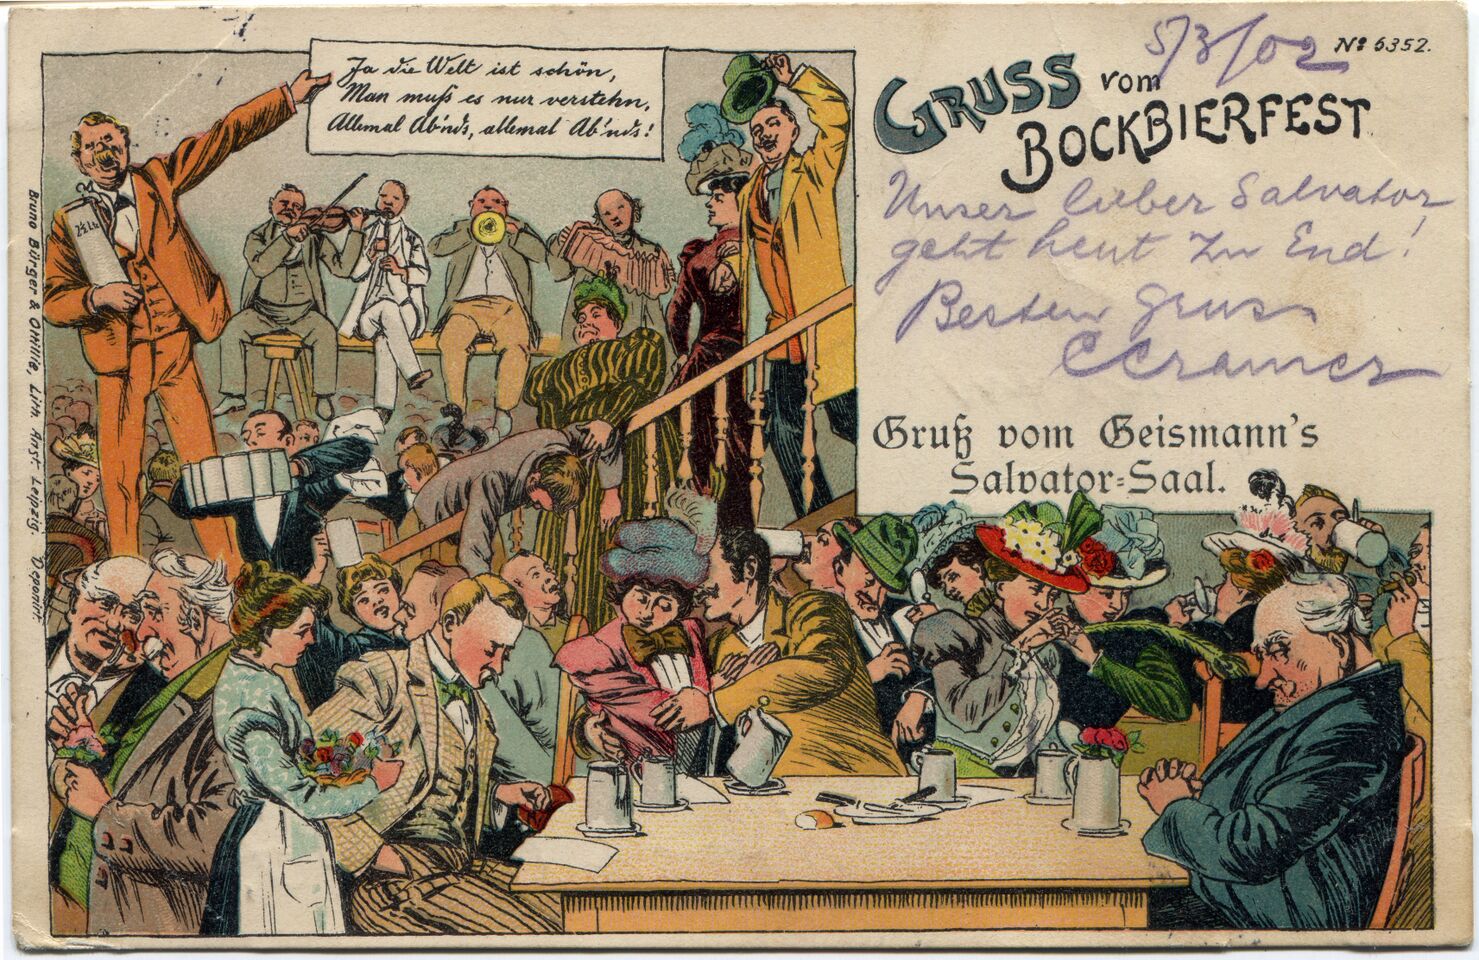 Ja die Welt ist schön,
Man muß es nur verstehn,
Allemal Ab'nds, allemal Ab'nds!
2½ Ltr
5/3/02
No 6352.
GRUSS vom
BOCKBIERFEST
Unser lieber Salvator
geht heut zu End!
Besten Gruss
CCramer
Gruß vom Geismann's
Salvator-Saal.
Bruno Bürger & Ottillie, Lith. Anst. Leipzig. Deponirt.